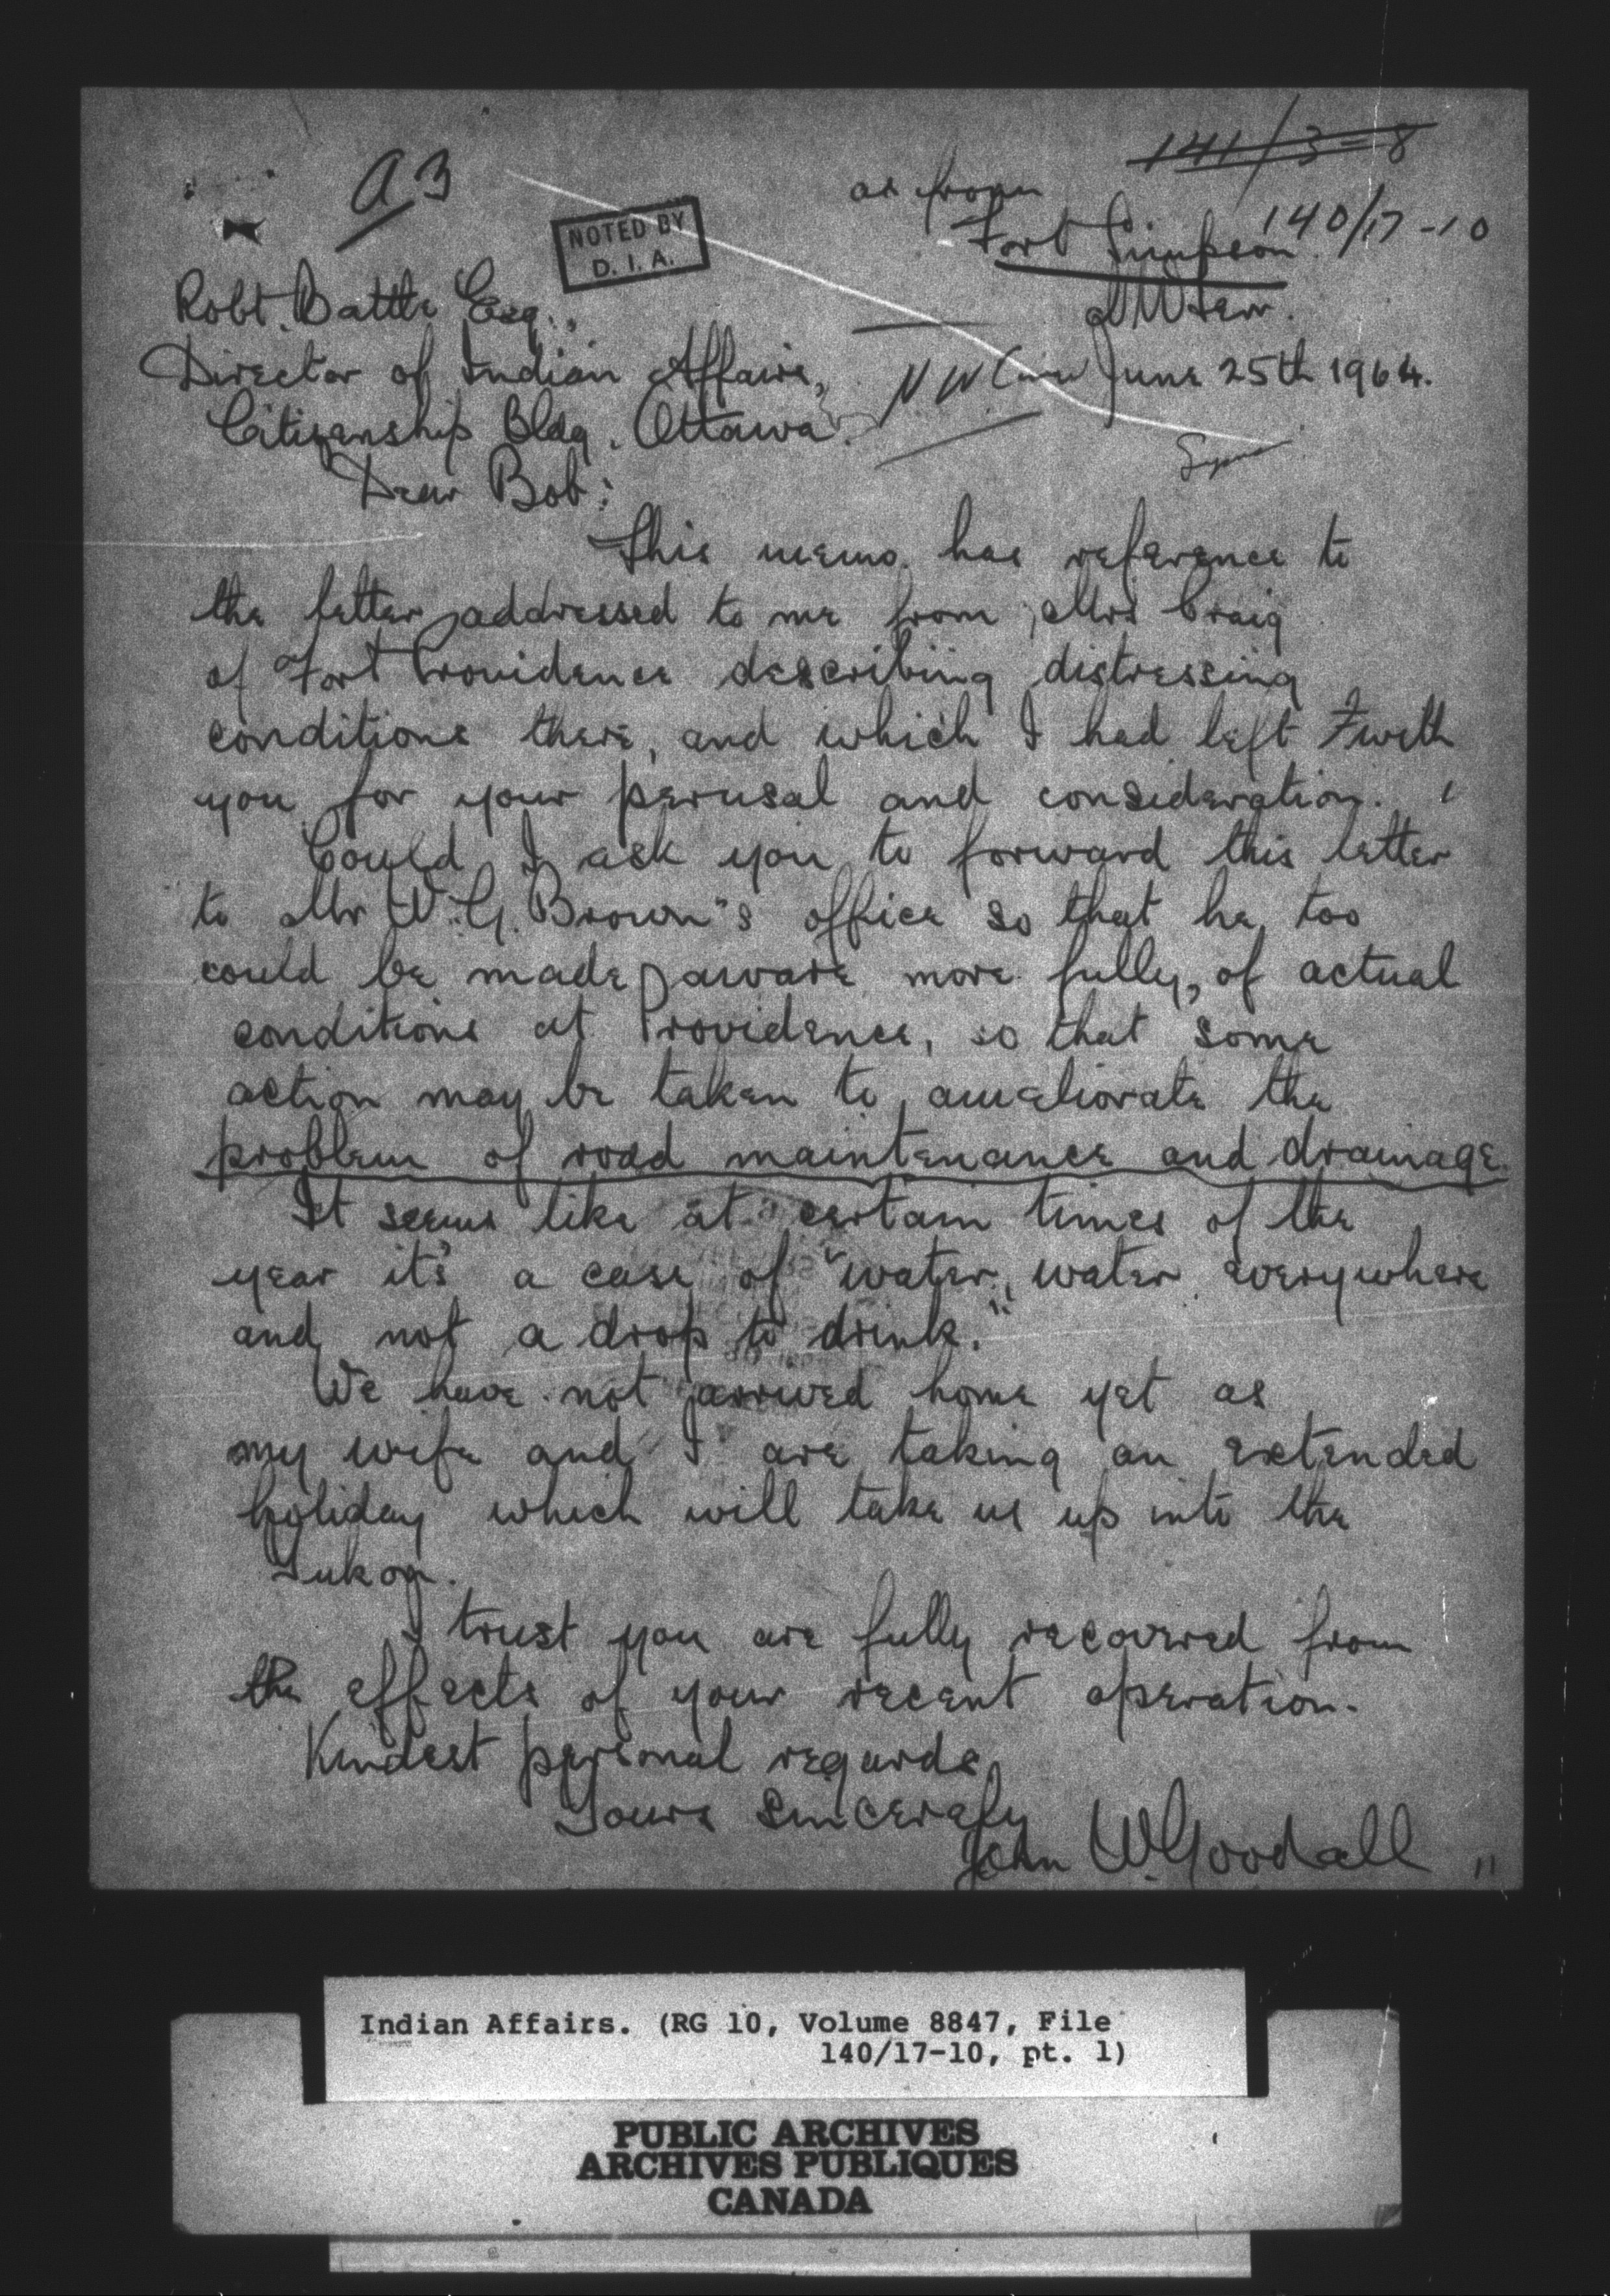 141/3-8
A3
as from
140/17-10
Fort Simpson
NOTED BY
D. I. A.
Robt. Battle Esq.,
Director of Indian Affairs,
June 25th 1964.
Citizenship Bldg. Ottawa.
Dear Bob:
This memo. has reference to
the letter addressed to me from Mrs Craig
of Fort Providence describing distressing
conditions there, and which I had left with
you for your perusal and consideration.
Could I ask you to forward this letter
to Mr W.G. Brown's office so that he too
could be made aware more fully, of actual
conditions at Providence, so that some
action may be taken to ameliorate the
problem of road maintenance and drainage.
It seems like at certain times of the
year it's a case of "water, water everywhere
and not a drop to drink."
We have not arrived home yet as
my wife and I are taking an extended
holiday which will take us up into the
Yukon.
I trust you are fully recovered from
the effects of your recent operation.
Kindest personal regards
Yours sincerely
John W. Goodall
11
Indian Affairs. (RG 10, Volume 8847, File
140/17-10, pt. 1)
PUBLIC ARCHIVES
ARCHIVES PUBLIQUES
CANADA